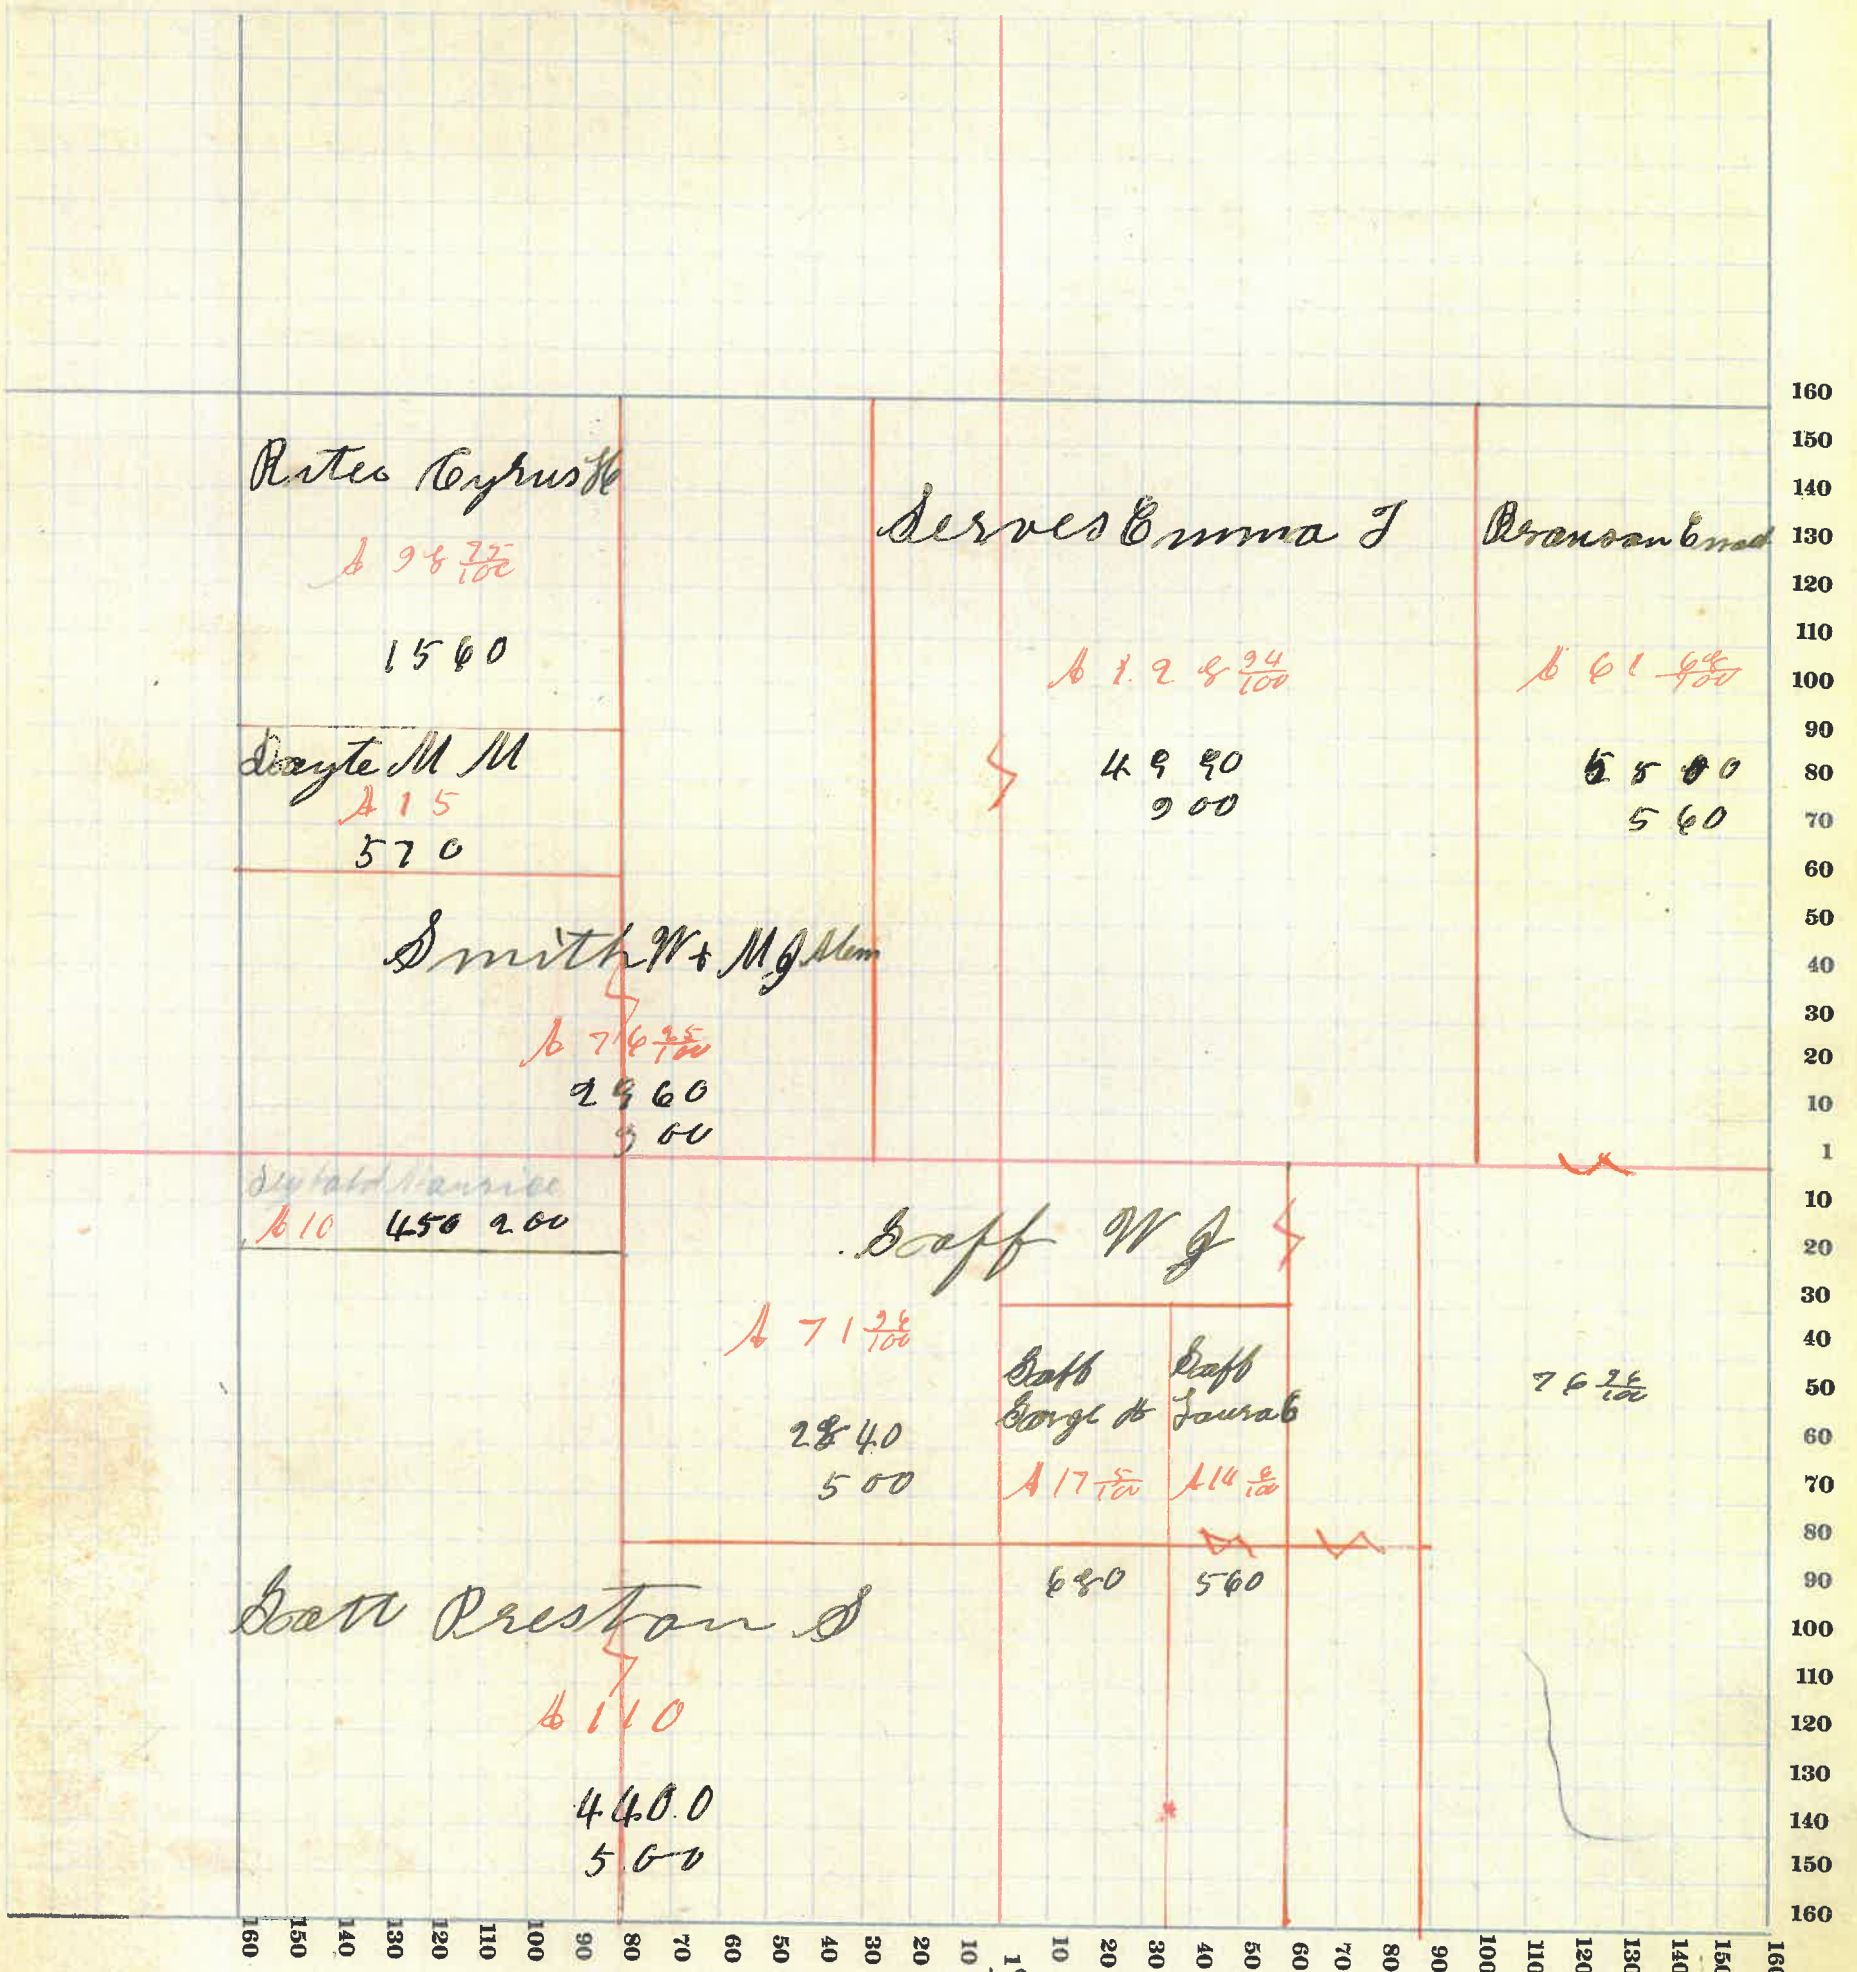 Cyrus H
A 98 75/100
1560
M M
A 15
570
Smith W + M J
A 76 25/100
2960
900
Serves Emma J
A 128 94/100
4990
900
A 61 68/100
560
A 10 450 200
Goff W J
A 71 96/100
2840
500
Goff
George H
A 17 5/100
680
Goff
Laura E
A 14 6/100
560
76 96/100
Preston S
A 110
4400
500
160
150
140
130
120
110
100
90
80
70
60
50
40
30
20
10
1
10
20
30
40
50
60
70
80
90
100
110
120
130
140
150
160
160 150 140 130 120 110 100 90 80 70 60 50 40 30 20 10 1 10 20 30 40 50 60 70 80 90 100 110 120 130 140 150 160